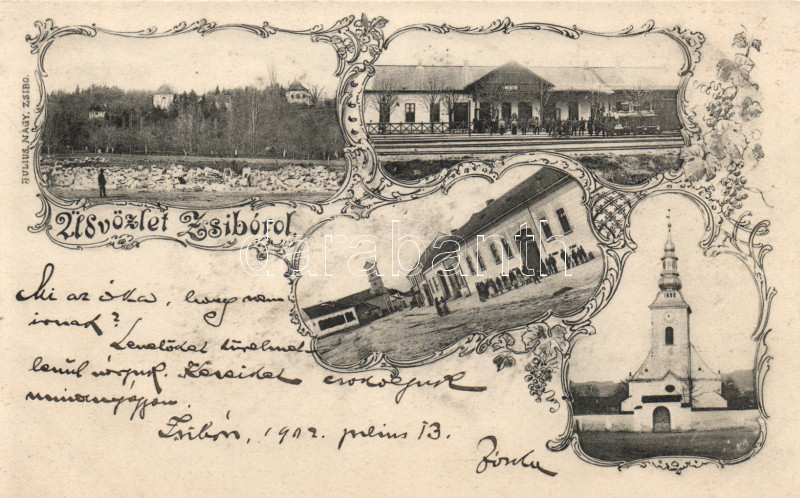 JULIUS NAGY, ZSIBO.
Üdvözlet Zsibóról.
darabanth
Mi az oka, hogy nem
irnak?
Levelödet türelmet-
lenül várjuk. Kezeidet csókoljuk
mindnyájan.
Zsibón, 1902. julius 13.